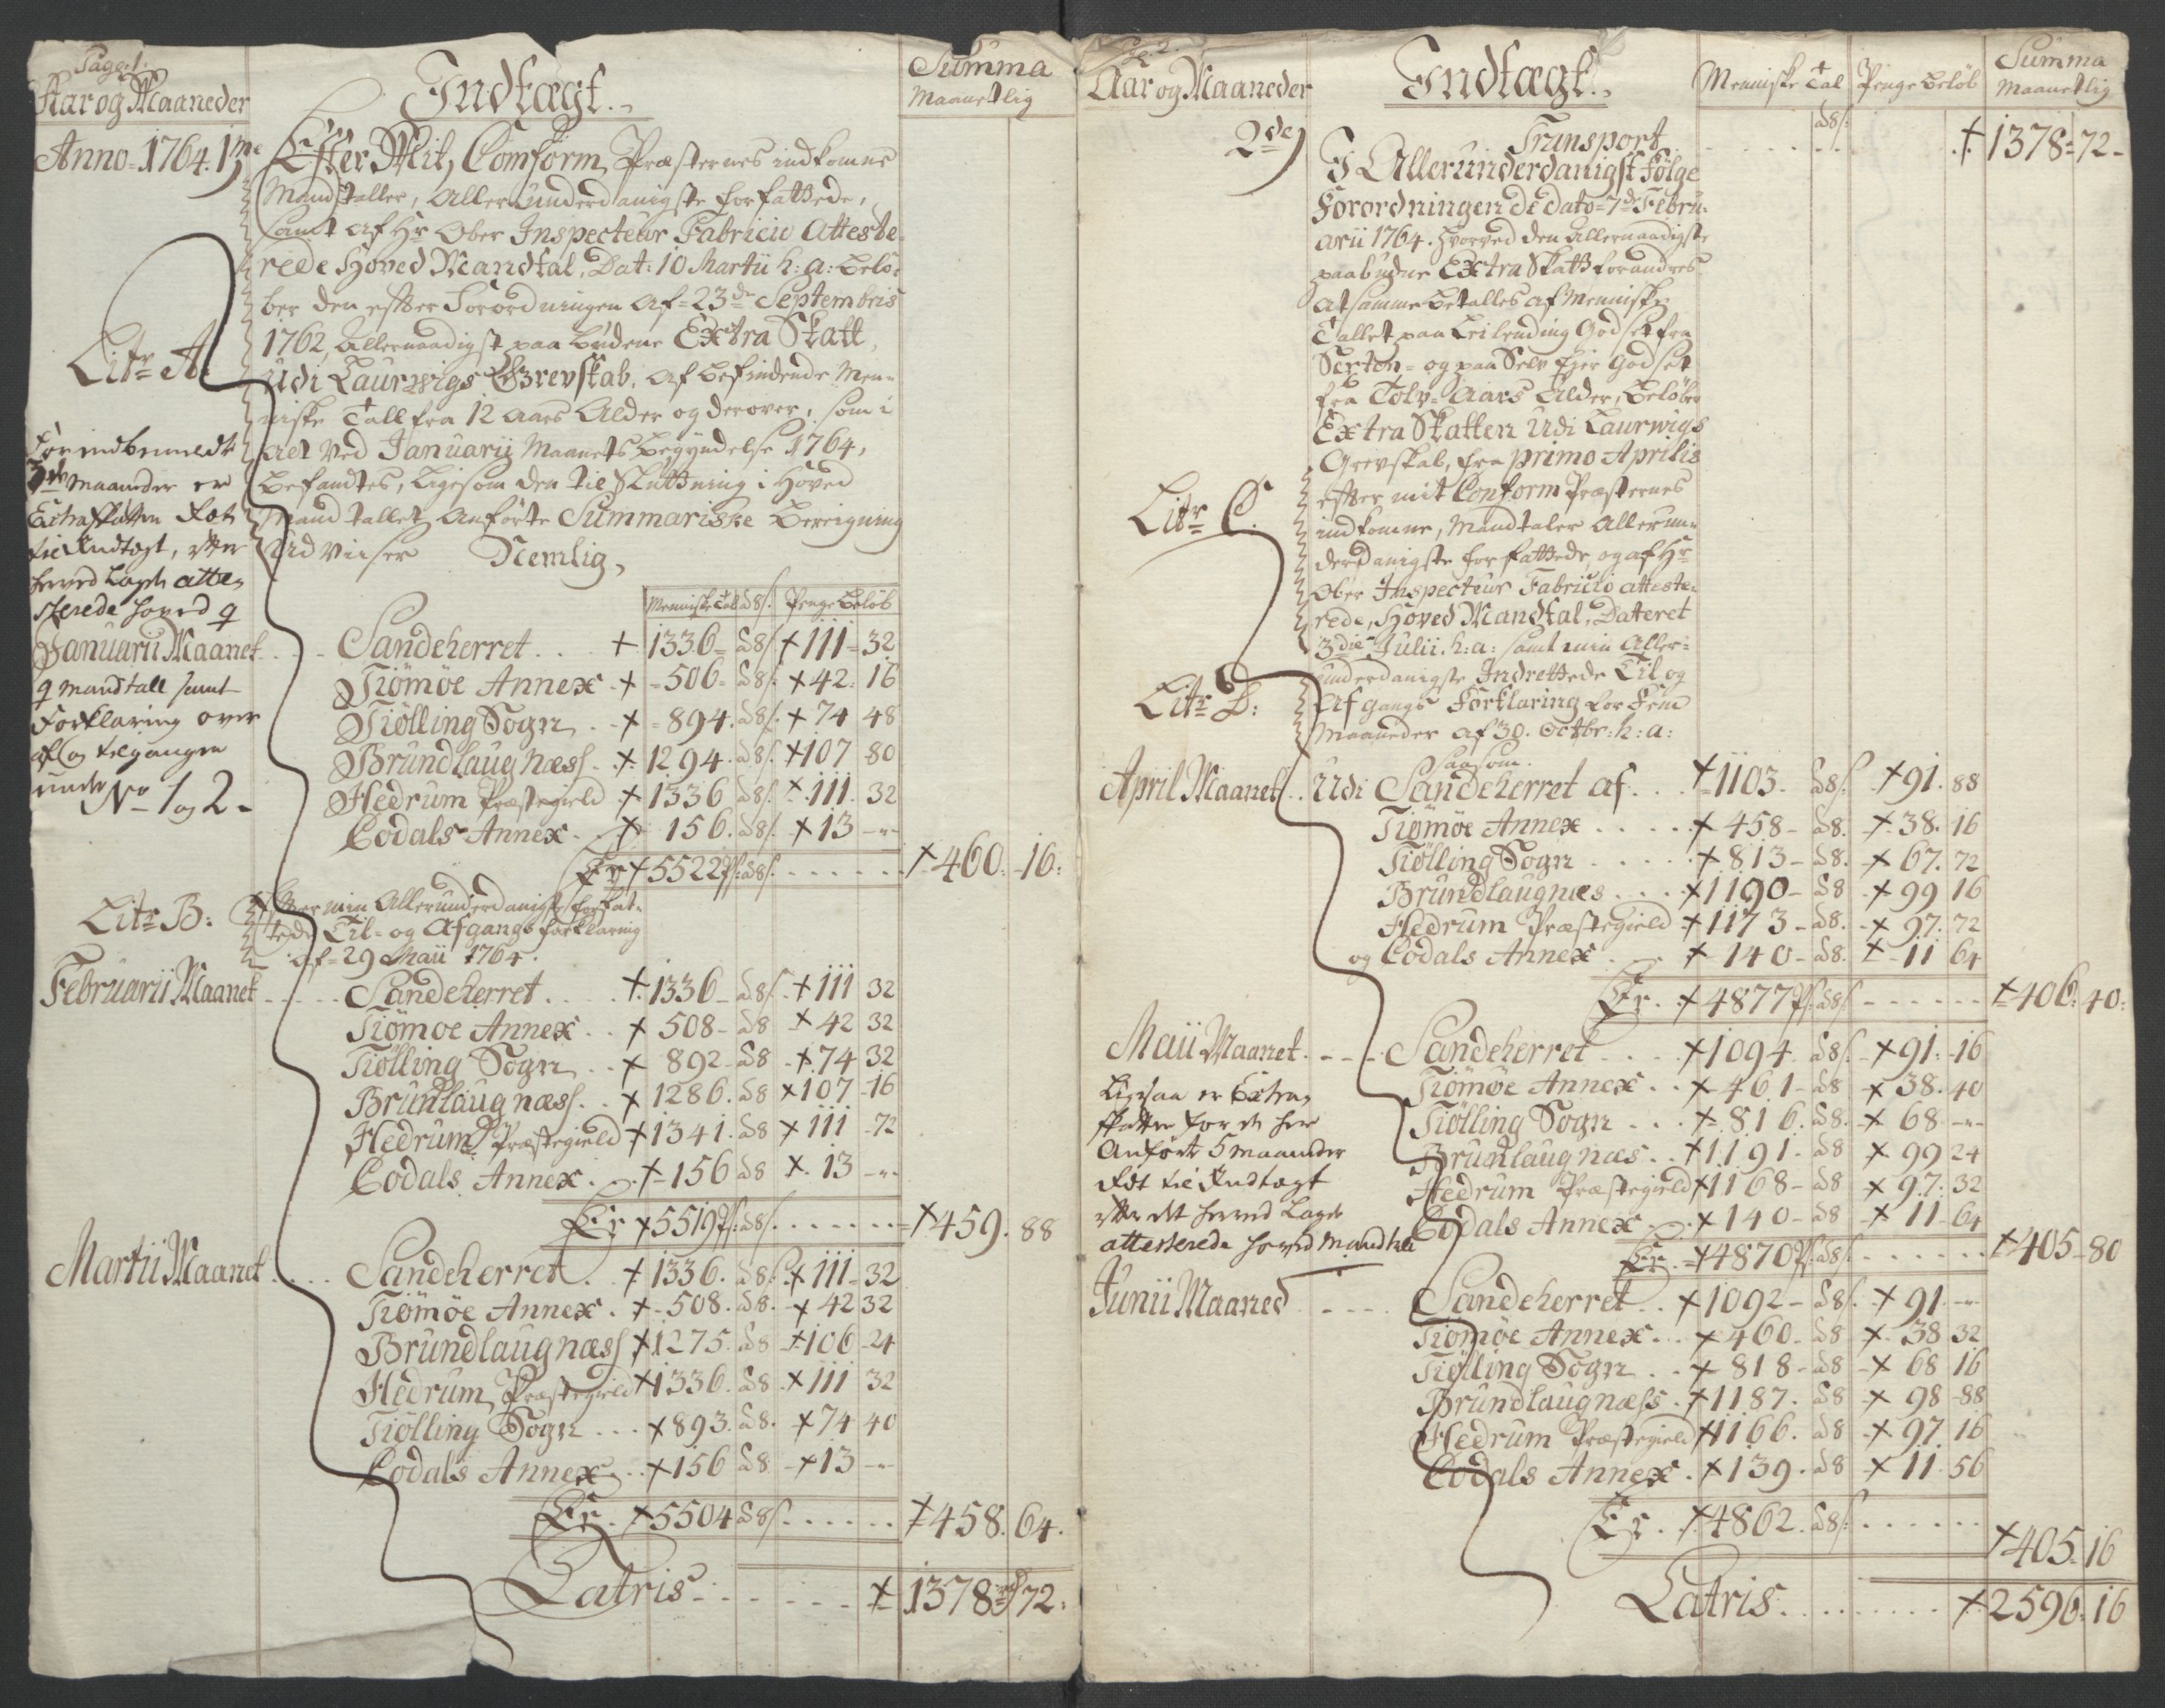 Pag: 1.
Aar og Maaneder
Indtægt.
Summa
Maanetlig
Anno 1764. 1me
Effter Mit, Conform Præsternes indkomne
Mandtaller, Allerunderdanigste forfattede,
samt af Hr Ober Inspecteur Fabricio Atteste-
rede Hoved Mandtal, Dat: 10 Martii h: a: belø-
ber den effter Forordningen Af 23de Septembris
1762, Allernaadigst paa budene Extra Skatt,
Udi Laurwigs Grevskab, Af befindende Men-
niske Tall fra 12 Aars Alder og derover, som i
alt ved Januarii Maanets begyndelse 1764,
befandtes, ligesom den til Sluttning i Hoved
Mandtallet Anførte Summariske beregning
Udviiser Nemlig,
Litr A:
Forindbemeldte
3de Maaneder er
Extraskatten
til Indtægt, efter
hosved lagde atte-
sterede hoved
Mandtall samt
Forklaring over
af og tilgangen
under No 1 og 2-
Menniske Tall à 8 s. Penge beløb
Januarii Maanet . . . Sandeherret . . . 1336 à 8 s. 111 32
Tiømöe Annex 506 à 8 s. 42 16
Tiølling Sogn 894 à 8 s. 74 48
Brundlaugnæss 1294 à 8 s. 107 80
Hedrum Præstegield 1336 à 8 s. 111 32
Codals Annex 156 à 8 s. 13 -"-
Er 5522 à 8 s. . . . . . 460. 16:
Litr B: Effter min Allerunderdanigste forfat-
tede Til- og Afgangs forklaring
af 29 Maii 1764.
Februarii Maanet . . . Sandeherret . . . 1336 à 8 s. 111 32
Tiømoe Annex . . 508 à 8 42 32
Tiølling Sogn . . 892 à 8 74 32
Brunlaugnæss . . 1286 à 8 107 16
Hedrum Præstegield 1341 à 8 111 72
Codals Annex . . 156 à 8 13 -"-
Er 5519 à 8 s. . . . . . 459. 88
Martii Maanet . . . Sandeherret . . 1336 à 8 s. 111 32
Tiømöe Annex . 508 à 8. 42 32
Brundlaugnæss 1275 à 8 106 24
Hedrum Præstegield 1336 à 8 111 32
Tiølling Sogn . . . 893 à 8. 74 40
Codals Annex . . 156 à 8 13 -"-
Er. 5504 à 8 s. . . . . . 458. 64.
Latris . . . . . . 1378 rd 72:
Pag: 2.
Aar og Maaneder
Indtægt.
Menniske Tal
Penge beløb
Summa
Maanetlig
2de
Transport . . . . à 8 s: . . 1378 72
I Allerunderdanigst Følge
Forordningen de dato 7de Febru-
arii 1764. hvorved den Allernaadigste
paabudne Extra Skatt forandres
at samme betalles af Menniske
Tallet paa Leilending Godset fra
Sexten- og paa Selv Ejer Godset
fra Tolv Aars Alder, beløber
Extra Skatten Udi Laurwigs
Grevskab, fra primo Aprilis
Litr C. effter mit Conform Præsternes
indkomne, Mandtaler Allerun-
derdanigste forfattede, og af Hr
Ober Inspecteur Fabricio atteste-
rede, Hoved Mandtal, Datteret
3die Julii h: a: samt min Aller-
underdanigste Indrettede Til og
Litr D: Afgangs Forklaring for Fem
Maaneder af 30. Octbr: h: a:
Saasom.
April Maanet . . Udi Sandeherret af . . . 1103 à 8 s. 91. 88
Tiømöe Annex . . . . 458 à 8. 38. 16
Tiølling Sogn . . . . 813 à 8. 67. 72
Brundlaugnæs . . . 1190 à 8 99 16
Hedrum Præstegield 1173 à 8. 97. 72
og Codals Annex . . . 140 à 8. 11 64
Er. 4877 à 8 s. . . . . . 406. 40:
Maii Maanet . . . . Sandeherret . . . 1094. à 8 s. 91. 16
Tiømöe Annex . . 461 à 8 38. 40
Tiølling Sogn . . . 816. à 8. 68 -"-
Brunlaugnæs . . 1191 à 8 99 24
Hedrum Præstegield 1168 à 8 97. 32
Codals Annex . . 140 à 8 11 64
Er. 4870 à 8 s. . . . . . 405 80
Ligesaa er Extra
skatten for de her
Anførte 5 maaneder
til Indtægt
efter det hosved Lagde
attesterede hoved Mandtal
Junii Maaned . . . . Sandeherret . . 1092 à 8 s. 91 -"-
Tiømöe Annex . . . 460 à 8 38 32
Tiølling Sogn . . . 818 à 8 68 16
Brundlaugnæss . 1187. à 8 98 88
Hedrum Præstegield 1166. à 8 97 16
Codals Annex . 139. à 8 11. 56
Er. 4862. à 8 s. . . . . .
405. 16
Latris . . . . . . 2596. 16